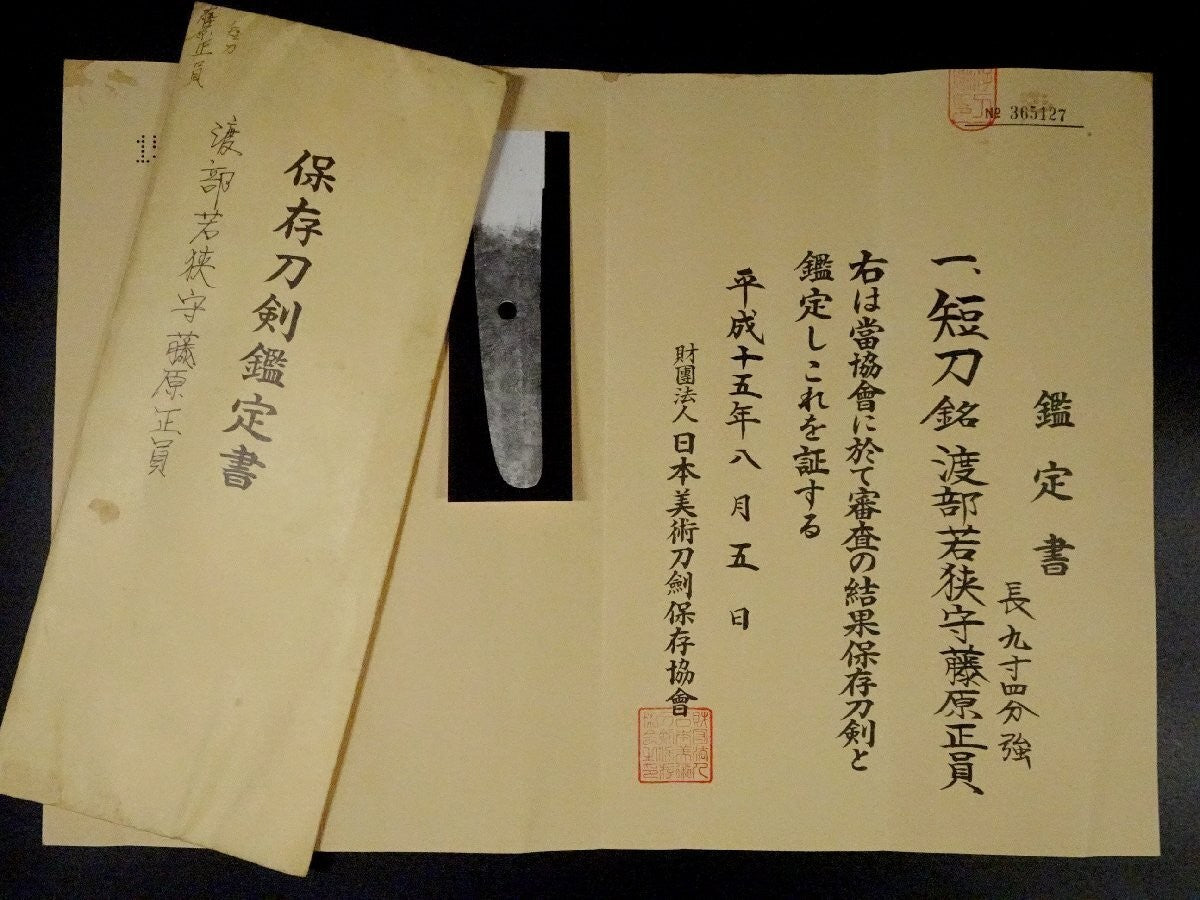 № 365127
鑑定書
一、短刀 銘 渡部若狭守藤原正員
長九寸四分強
右は當協會に於て審査の結果保存刀剣と
鑑定しこれを証する
平成十五年八月五日
財團法人 日本美術刀劍保存協會
保存刀剣鑑定書
渡部若狭守藤原正員
短刀